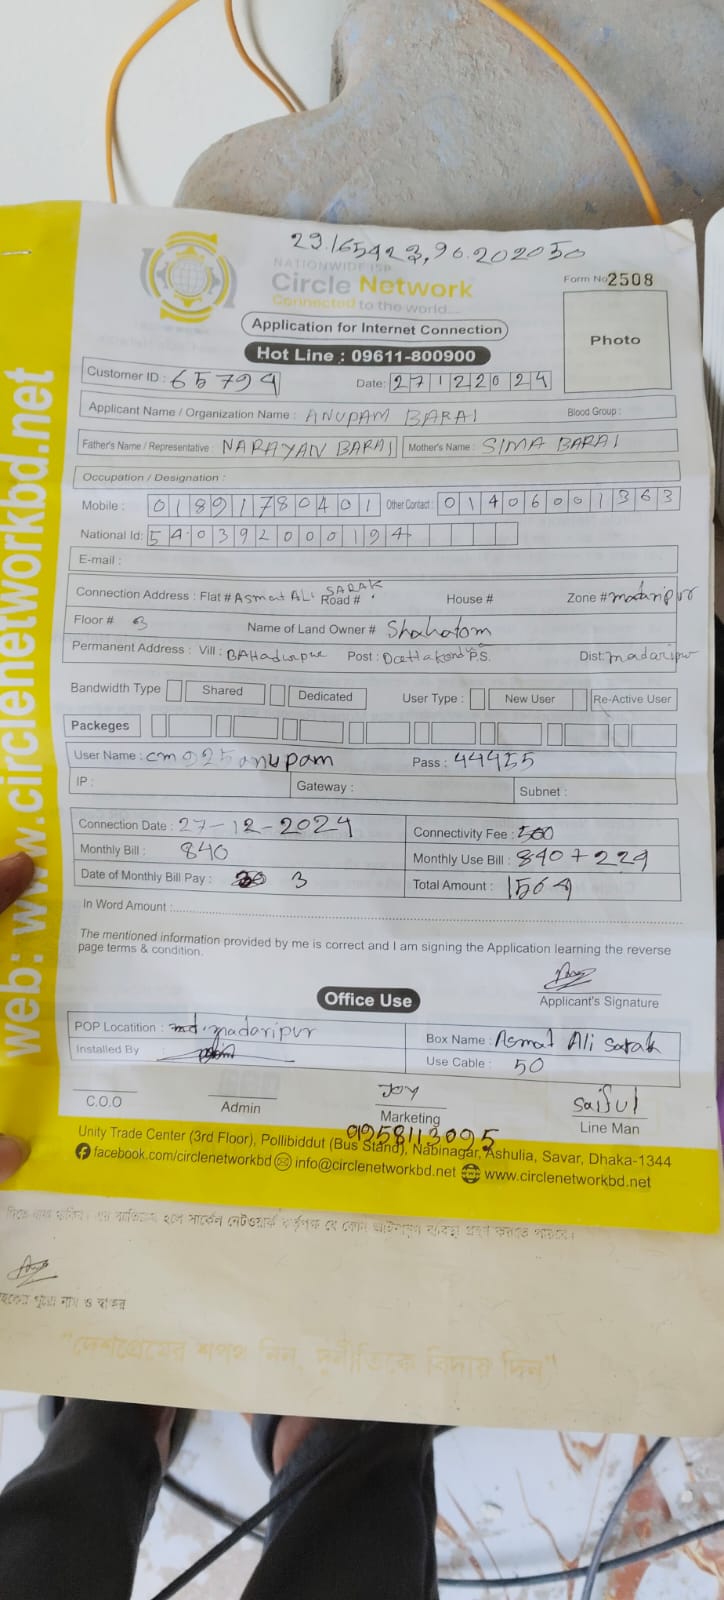 29.165423, 90.202050
NATIONWIDE ISP
Circle Network
Connected to the world...
Form No 2508
Application for Internet Connection
Photo
Hot Line : 09611-800900
Customer ID : 65794
Date: 27122024
Applicant Name / Organization Name : ANUPAM BARAI Blood Group :
Father's Name / Representative : NARAYAN BARAI Mother's Name : SIMA BARAI
Occupation / Designation :
Mobile : 01891780401 Other Contact : 01406001363
National Id: 540392000194
E-mail :
Connection Address : Flat # Asmat ALI SARAK Road # House # Zone # madaripur
Floor # 3 Name of Land Owner # Shahatom
Permanent Address : Vill : BAHadurpur Post : P.S. Dist: madaripur
Bandwidth Type Shared Dedicated User Type : New User Re-Active User
Packeges
User Name : cm925anupam Pass : 44455
IP : Gateway : Subnet :
Connection Date : 27-12-2024 Connectivity Fee : 500
Monthly Bill : 840 Monthly Use Bill : 840 + 224
Date of Monthly Bill Pay : 3 Total Amount : 1564
In Word Amount :
The mentioned information provided by me is correct and I am signing the Application learning the reverse
page terms & condition.
Applicant's Signature
Office Use
POP Locatition : md. madaripur Box Name : Asmat Ali Sarak
Installed By : Use Cable : 50
C.O.O Admin Joy Marketing Saiful Line Man
01958113095
Unity Trade Center (3rd Floor), Pollibiddut (Bus Stand), Nabinagar, Ashulia, Savar, Dhaka-1344
facebook.com/circlenetworkbd info@circlenetworkbd.net www.circlenetworkbd.net
web: www.circlenetworkbd.net
হলে সার্কেল নেটওয়ার্ক কর্তৃপক্ষ যে কোন আইনানুগ ব্যবস্থা গ্রহণ করতে পারবে।
পুরো নাম ও স্বাক্ষর
"দেশপ্রেমের শপথ নিন, দুর্নীতিকে বিদায় দিন"